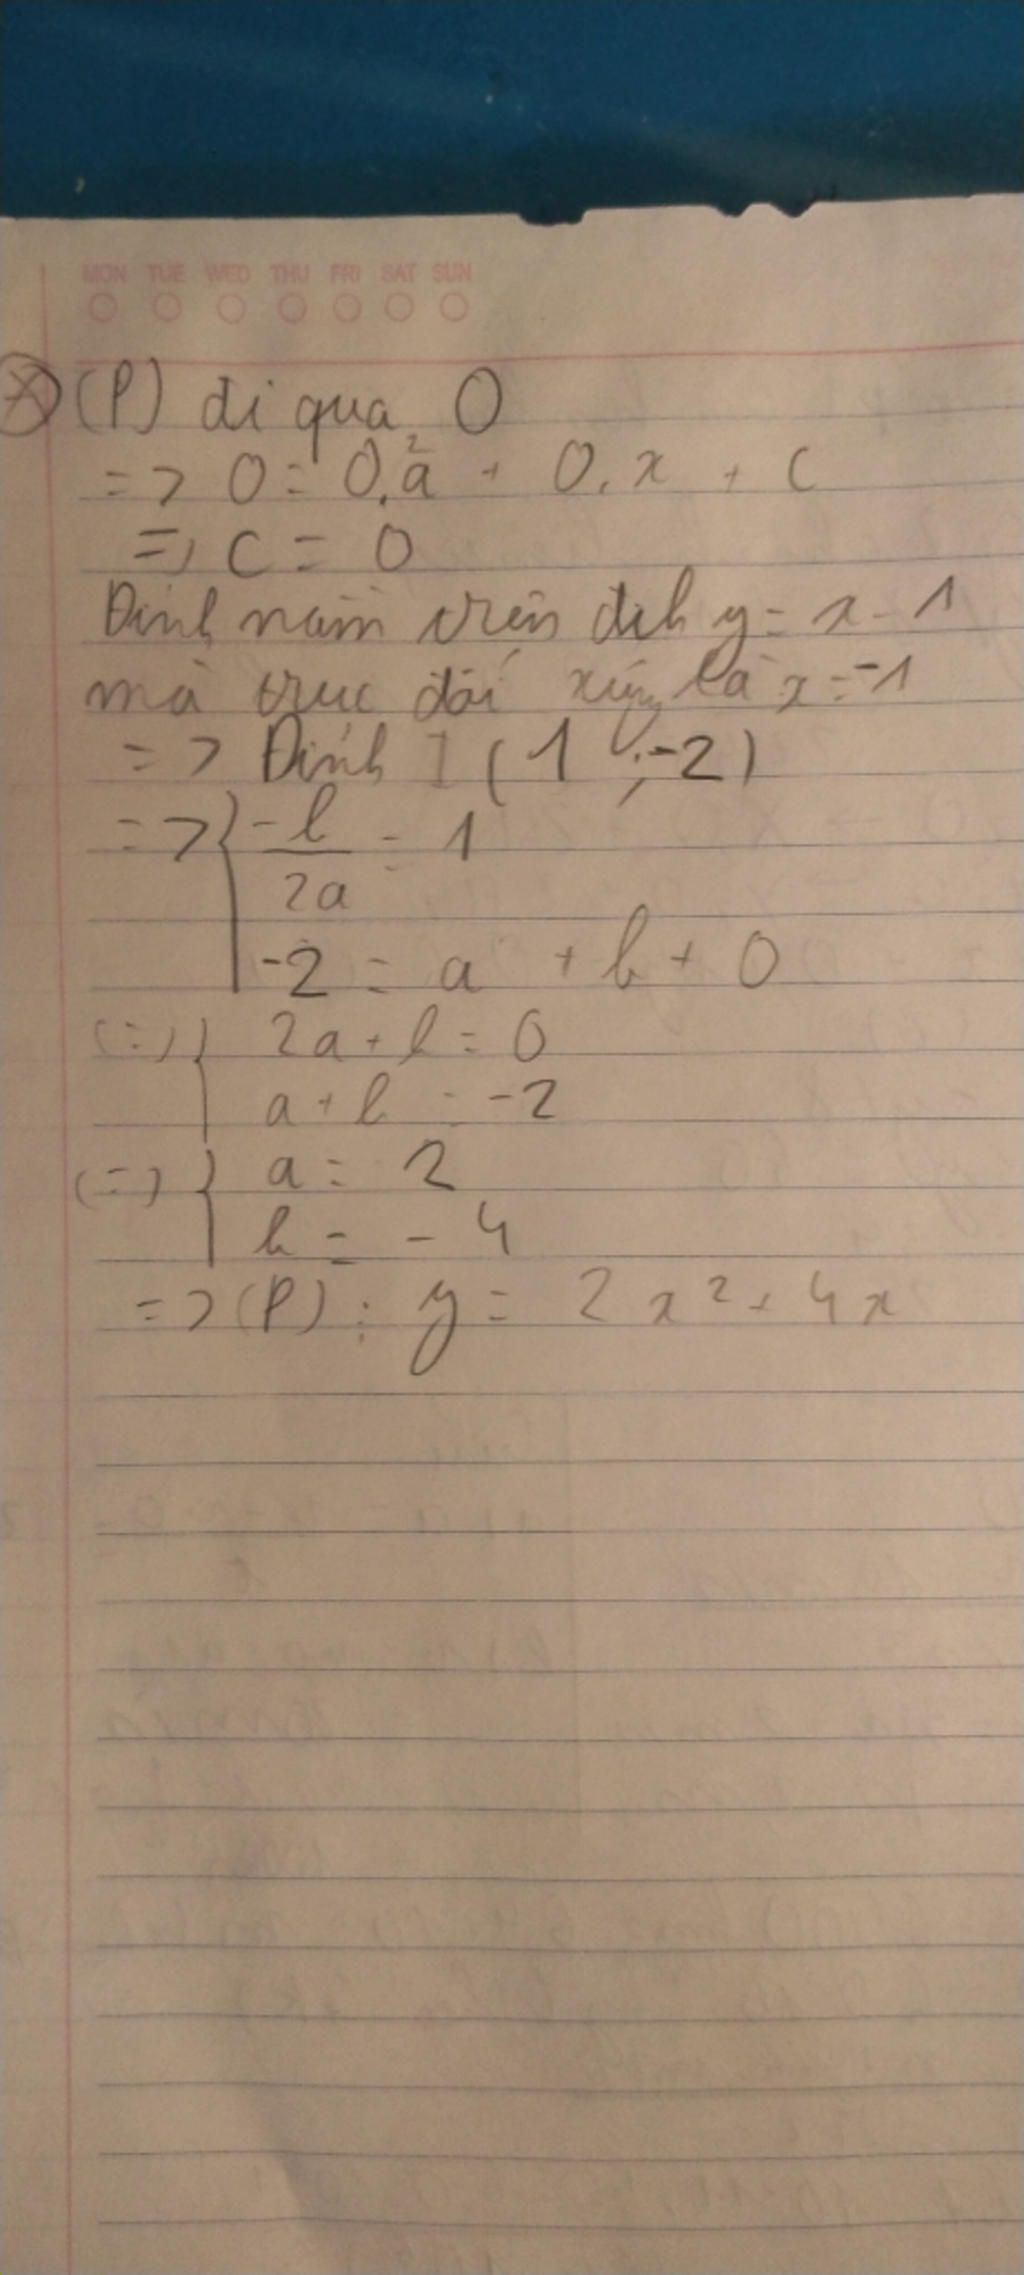 MON TUE WED THU FRI SAT SUN
(P) đi qua O
=> 0 = 0.a² + 0.x + c
=> c = 0
Đỉnh nằm trên đth y = x - 1
mà trục đối xứng là x = -1
=> Đỉnh I (1 ; -2)
=> { -b/2a = 1
-2 = a + b + 0
(=) { 2a + b = 0
a + b = -2
(=) { a = 2
b = - 4
=> (P) : y = 2x² + 4x